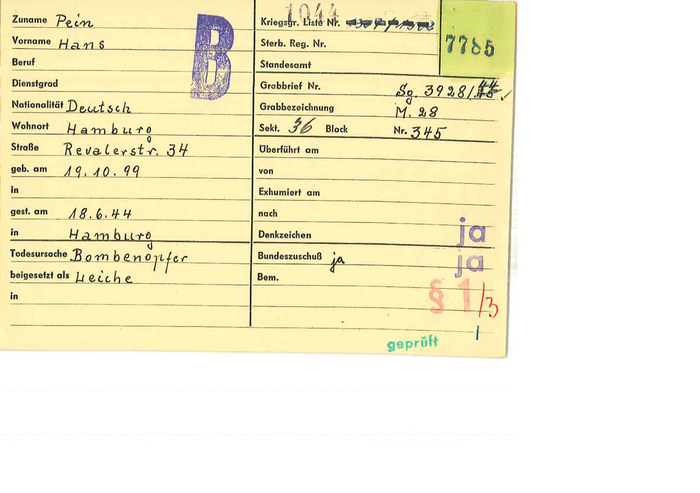 Zuname Pein
Vorname Hans
Beruf
Dienstgrad
Nationalität Deutsch
Wohnort Hamburg
Straße Revalerstr. 34
geb. am 19.10.99
in
gest. am 18.6.44
in Hamburg
Todesursache Bombenopfer
beigesetzt als Leiche
in
B
1944
Kriegsgr. Liste Nr.
7785
Sterb. Reg. Nr.
Standesamt
Grabbrief Nr. Sg. 3928/44
Grabbezeichnung M. 28
Sekt. 36 Block Nr. 345
Überführt am
von
Exhumiert am
nach
Denkzeichen ja
Bundeszuschuß ja ja
Bem.
§ 1/3
geprüft